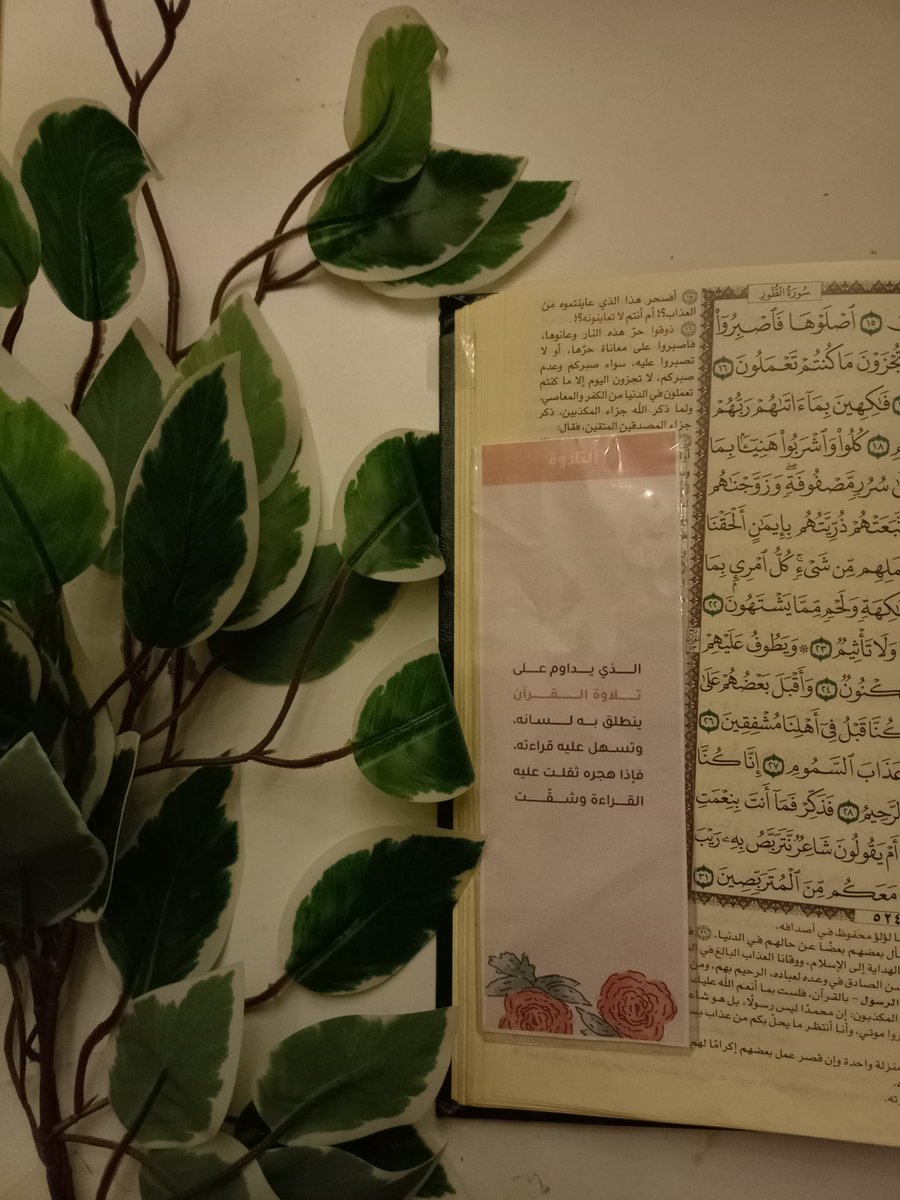 سُورَةُ الطُّورِ
ٱصۡلَوۡهَا فَٱصۡبِرُوٓاْ
تُجۡزَوۡنَ مَا كُنتُمۡ تَعۡمَلُونَ ١٦
فَٰكِهِينَ بِمَآ ءَاتَىٰهُمۡ رَبُّهُمۡ
١٨ كُلُواْ وَٱشۡرَبُواْ هَنِيٓـَٔۢا بِمَا
سُرُرٖ مَّصۡفُوفَةٖۖ وَزَوَّجۡنَٰهُم
ذُرِّيَّتُهُم بِإِيمَٰنٍ أَلۡحَقۡنَا
مِّن شَيۡءٖۚ كُلُّ ٱمۡرِيِٕۭ بِمَا
وَلَحۡمٖ مِّمَّا يَشۡتَهُونَ ٢٢
وَلَا تَأۡثِيمٞ ٢٣ ۞ وَيَطُوفُ عَلَيۡهِمۡ
٢٤ وَأَقۡبَلَ بَعۡضُهُمۡ عَلَىٰ
كُنَّا قَبۡلُ فِيٓ أَهۡلِنَا مُشۡفِقِينَ ٢٦
عَذَابَ ٱلسَّمُومِ ٢٧ إِنَّا كُنَّا
٢٨ فَذَكِّرۡ فَمَآ أَنتَ بِنِعۡمَتِ
أَمۡ يَقُولُونَ شَاعِرٞ نَّتَرَبَّصُ بِهِۦ رَيۡبَ
مَعَكُم مِّنَ ٱلۡمُتَرَبِّصِينَ ٣١
٥٢٤
١٥ أفسحر هذا الذي عاينتموه من
العذاب؟! أم أنتم لا تعاينونه؟!
١٦ ذوقوا حرّ هذه النار وعانوها،
فاصبروا على معاناة حرّها، أو لا
تصبروا عليه، سواء صبركم وعدم
صبركم، لا تجزون اليوم إلا ما كنتم
تعملون في الدنيا من الكفر والمعاصي.
ولما ذكر الله جزاء المكذبين، ذكر
جزاء المصدقين المتقين، فقال:
التلاوة
الذي يداوم على
تلاوة القرآن
ينطلق به لسانه،
وتسهل عليه قراءته،
فإذا هجره ثقلت عليه
القراءة وشقّت
لؤلؤ محفوظ في أصدافه.
بعضهم بعضًا عن حالهم في الدنيا. ٢٦
الهداية إلى الإسلام، ووقانا العذاب البالغ في
الصادق في وعده لعباده، الرحيم بهم، ومن
الرسول - بالقرآن، فلست بما أنعم الله عليك
المكذبون: إن محمدًا ليس رسولًا، بل هو شاعر
موتي، وأنا أنتظر ما يحلّ بكم من عذاب
منزلة واحدة وإن قصر عمل بعضهم إكرامًا لهم